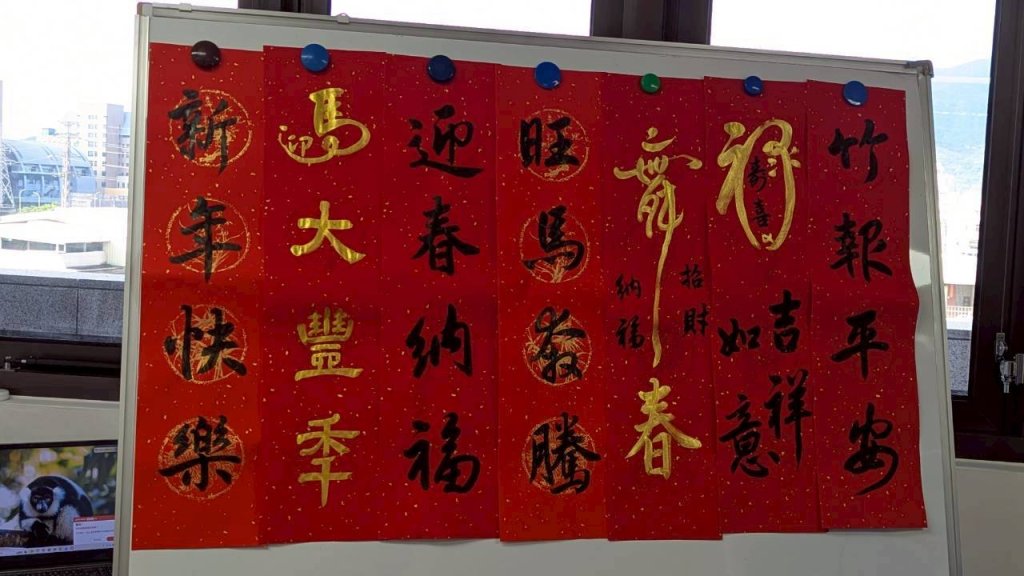 新年快樂
馬迎
大豐秊
迎春納福
旺馬發騰
舞春
招財
納福
祥
壽喜
吉祥
如意
竹報平安